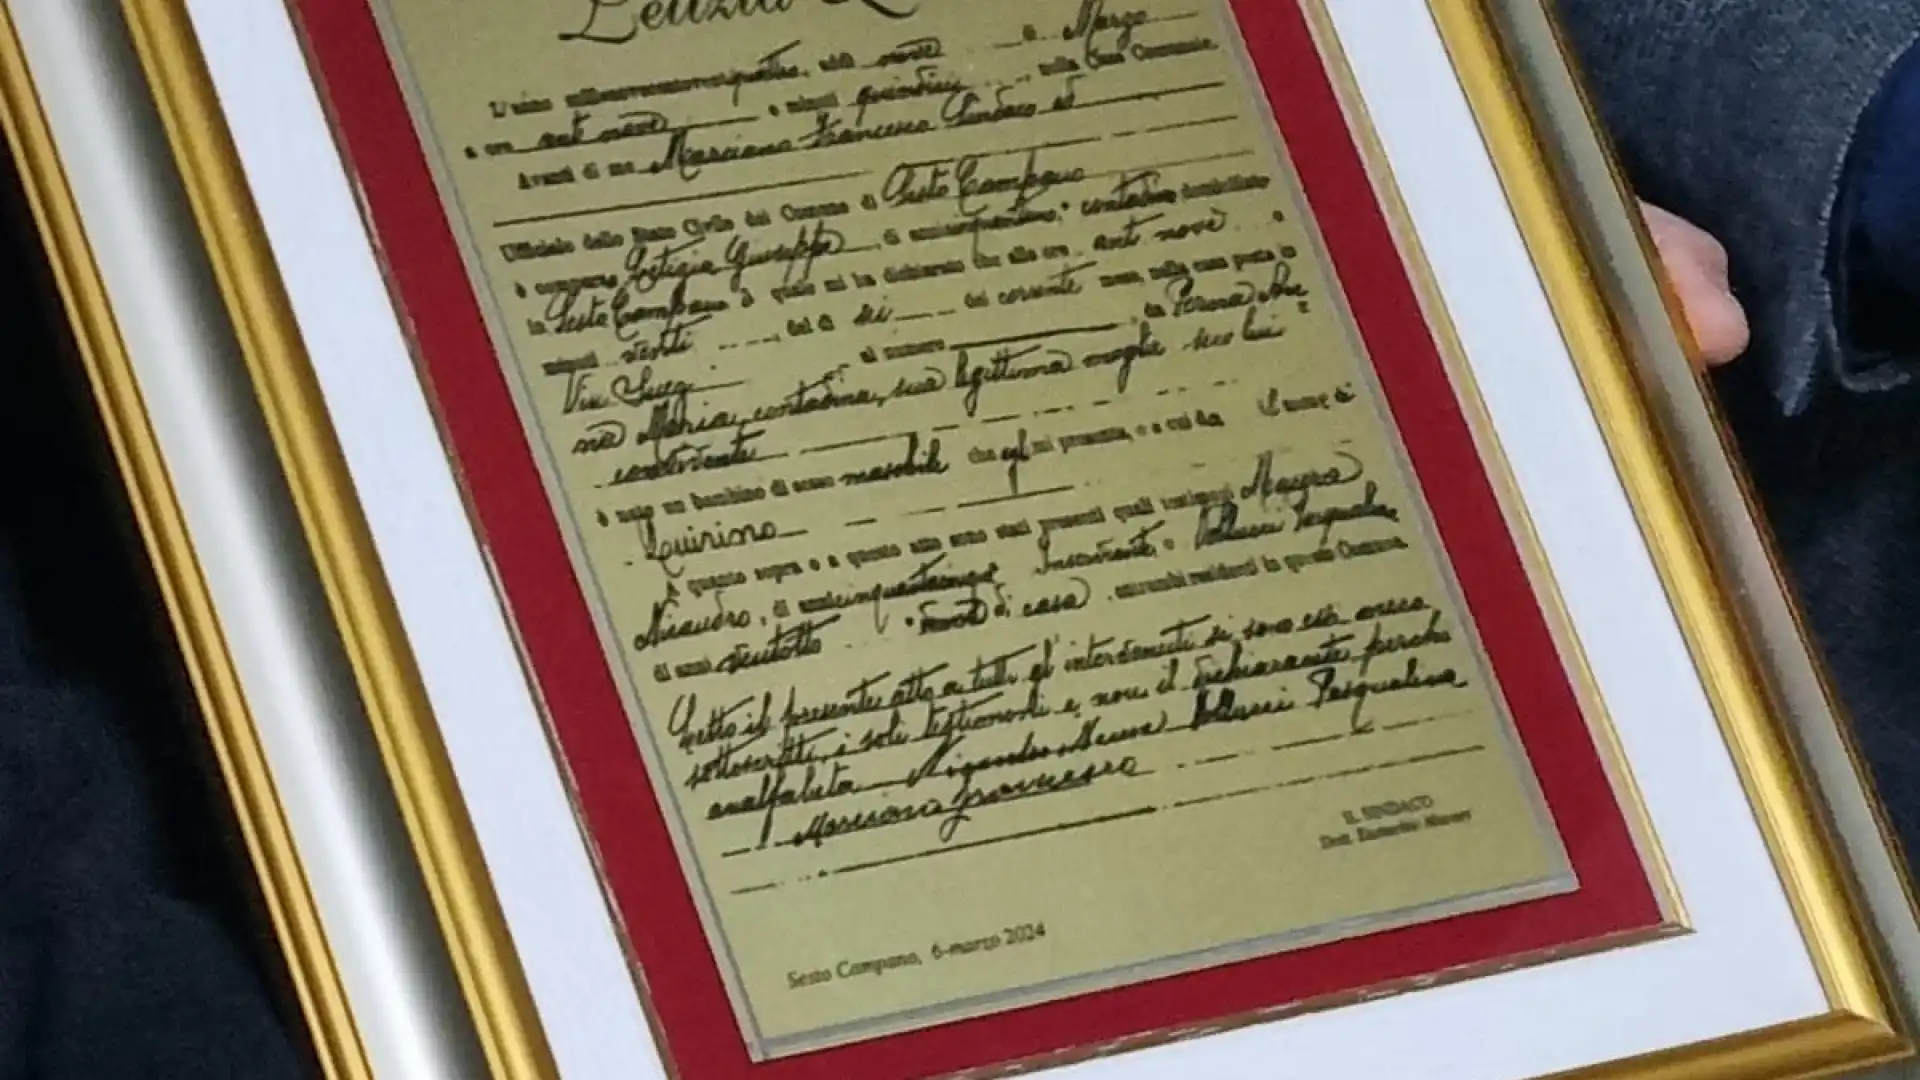 Letizia
L'anno millenovecentoventiquattro, addì nove di Marzo
a ore ant nove e minuti quindici nella Casa Comunale.
Avanti di me Marciano Francesco Sindaco ed
Ufficiale dello Stato Civile del Comune di Sesto Campano
è comparso Letizia Giuseppe, di anni contadino domiciliato
in Sesto Campano il quale mi ha dichiarato che alle ore ant nove e
minuti venti del dì sei del corrente mese, nella casa posta in
Via al numero da Perna An
na Maria, contadina, sua legittima moglie seco lui
convivente
è nato un bambino di sesso maschile che egli mi presenta, e a cui dà il nome di
Quirino
A quanto sopra e a questo atto sono stati presenti quali testimoni Maura
Nicandro, di anni cinquantacinque e Pasqualina
di anni ventotto di casa entrambi residenti in questo Comune.
Letto il presente atto a tutti gl'intervenuti si sono essi meco
sottoscritti, i soli testimoni e non il dichiarante perché
analfabeta Nicandro Maura Pasqualina
Marciano Francesco
IL SINDACO
Dott.
Sesto Campano, 6-marzo 2024